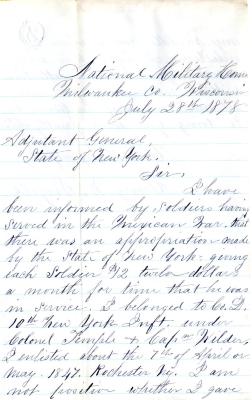 National Military Home
Milwaukee Co. Wisconsin
July 28th 1878
Adjutant General,
State of New York.
Sir,
I have
been informed by soldiers having
served in the Mexican War, that
there was an appropriation made
by the State of New York giving
each Soldier $12 twelve dollars
a month for time that he was
in service. I belonged to Co. D.
10th New York Inft. under
Colonel Temple & Capn Wilder,
I enlisted about the 7th of April or
May 1847. Rochester NY. I am
not positive whether I gave